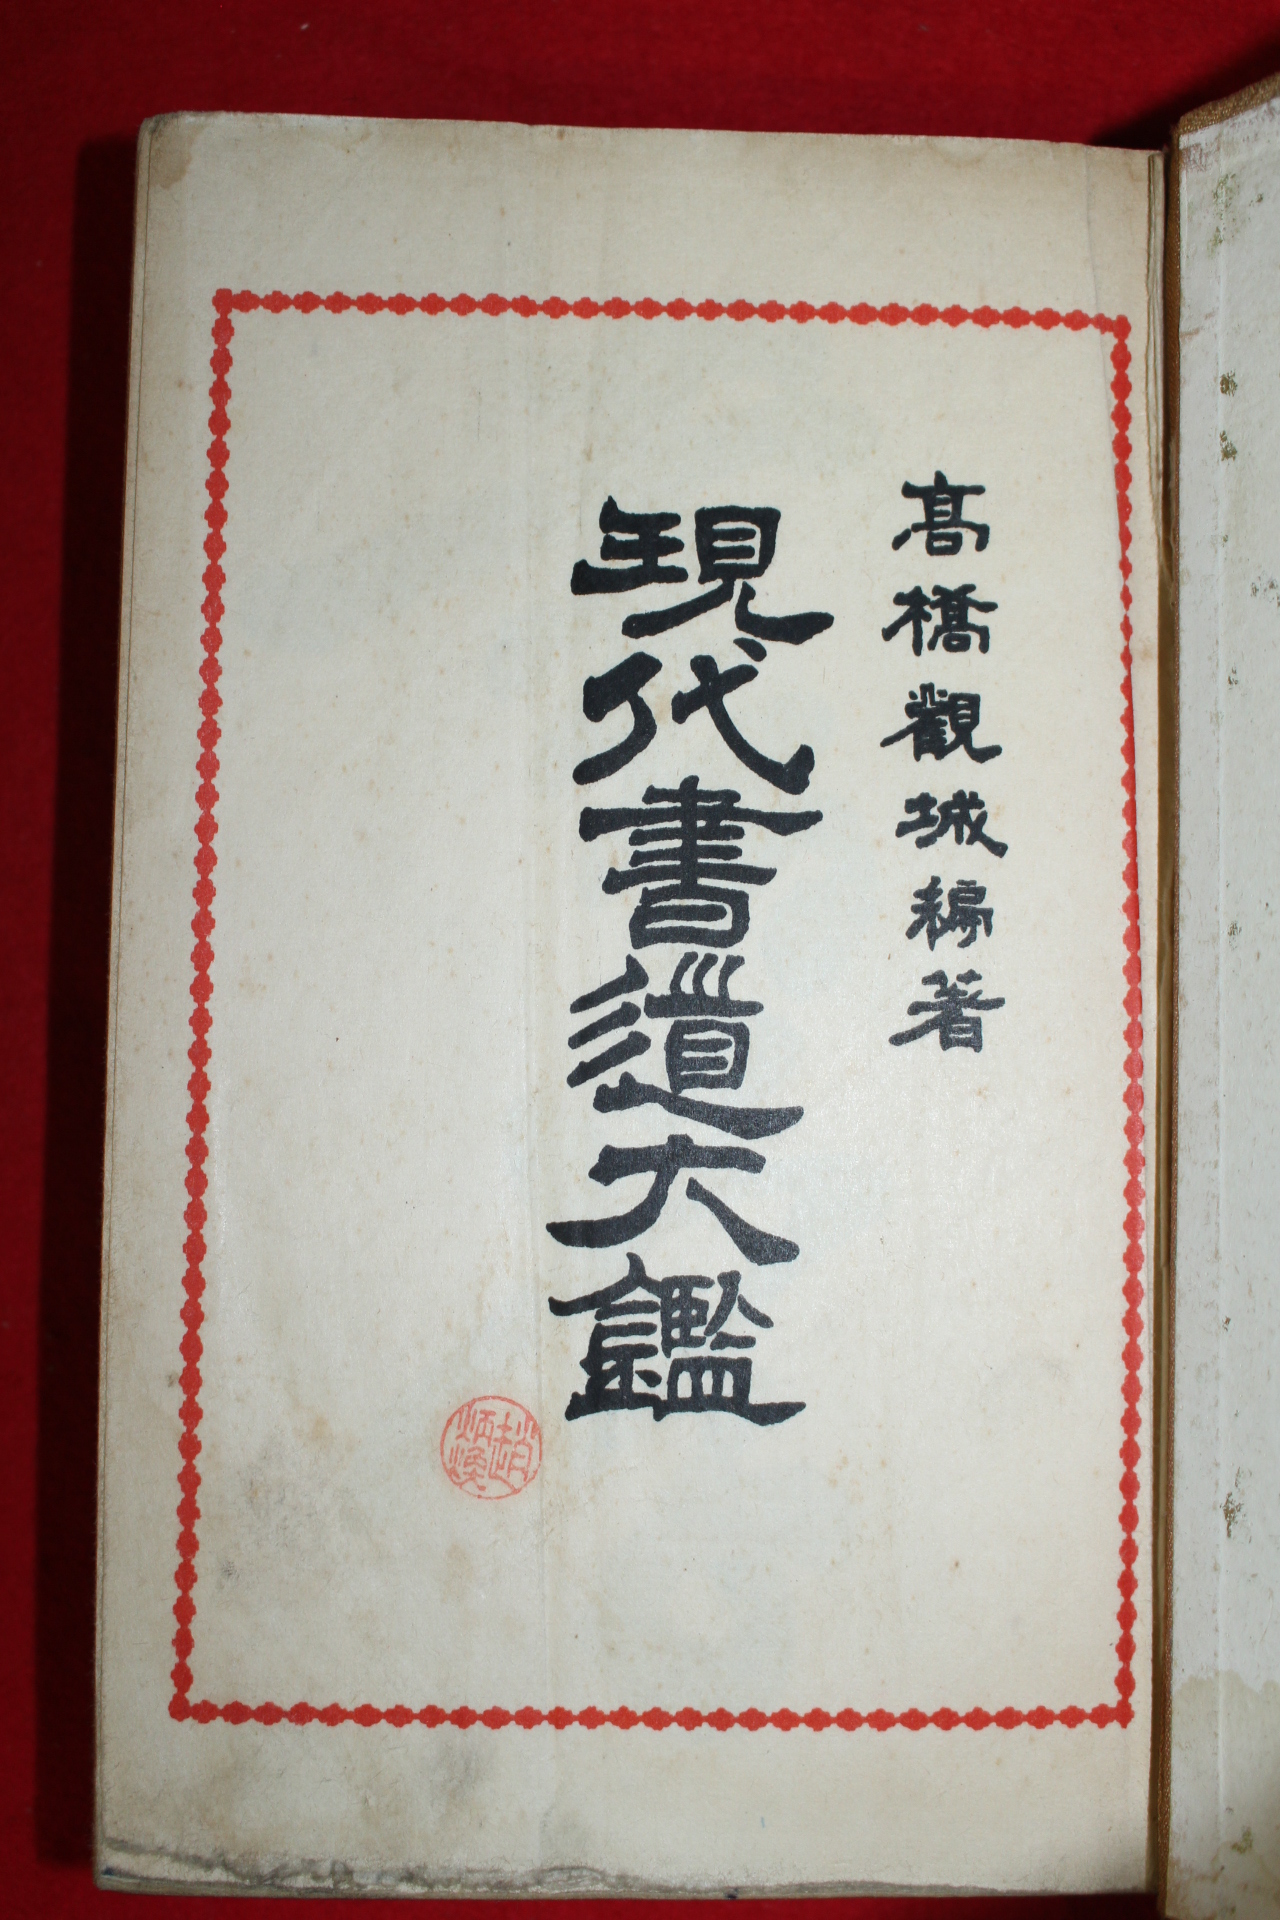 高橋觀城編著
現代書道大鑑
趙炳煥